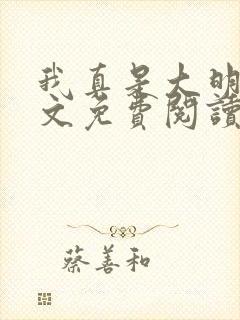 我真是大明
文免費閱讀
蔡善和